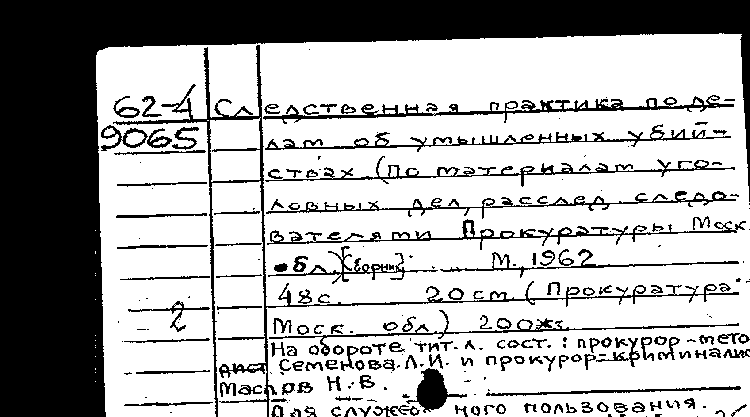 62-4 Следственная практика по де-
9065 лам об умышленных убий-
ствах (По материалам уго-
ловных дел, расслед. следо-
вателями Прокуратуры Моск.
обл.) [Сборник] М., 1962
48 с. 20 см. (Прокуратура
2 Моск. обл.) 200 экз.
На обороте тит. л. сост.: прокурор-мето-
дист Семенова Л.И. и прокурор-криминалис
Маслов Н.В.
Для служеб ного пользования.